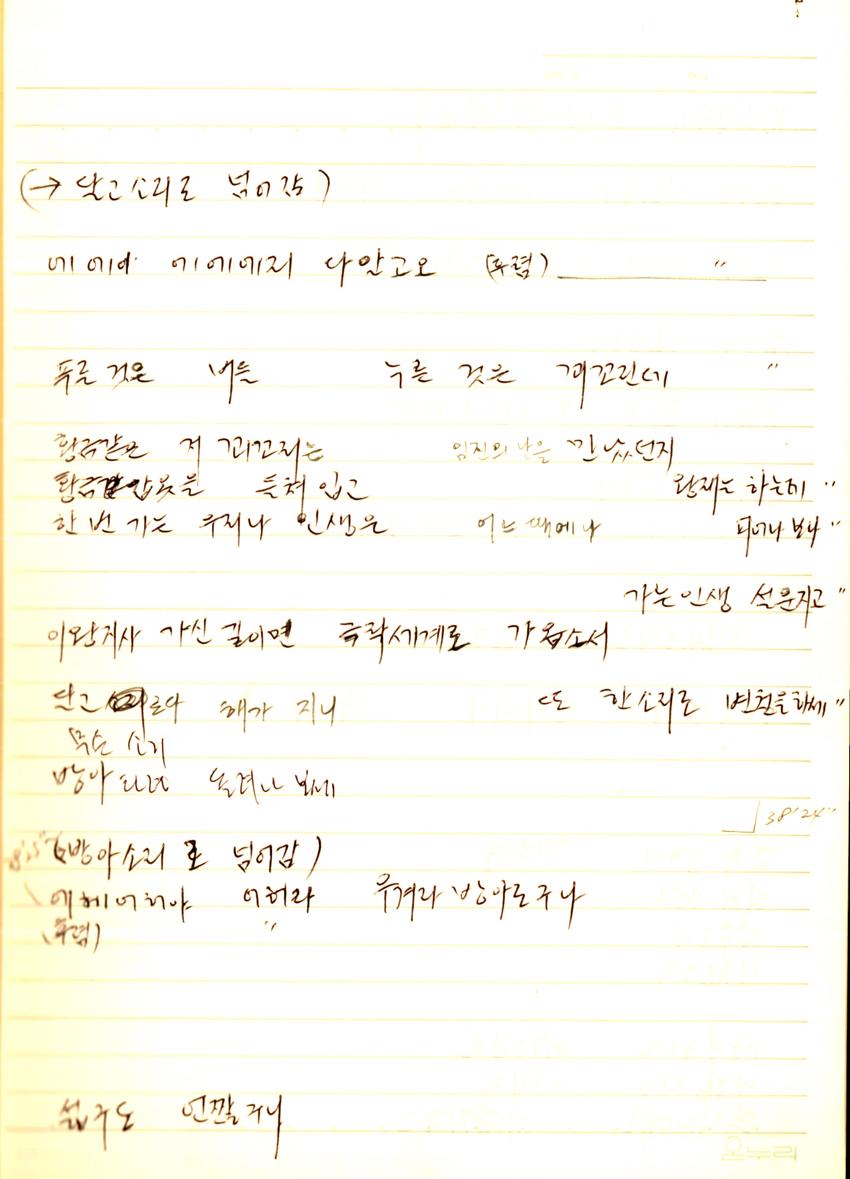 (→ 달고소리로 넘어감)
에 에에 에에에리 나알고오 (후렴) 〃
푸른 것은 버들 누른 것은 꾀꼬린데 〃
황금같은 저 꾀꼬리는 임진의 난을 만났던지
황금갑옷을 들쳐 입고 왕재는 하는데 〃
한 번 가는 우리나 인생은 어느 때에나 〃
가는 인생 설운지고 〃
이왕지사 가신 길이면 극락세계로 가옵소서
달고 해가 지니 또 한소리로 변천을 하세 〃
무슨 소리
방아 소리 보세
38'24"
(방아소리로 넘어감)
에헤 어허야 어허라 우겨라 방아로구나
(후렴) 〃
섬구도 언짢구나
온누리